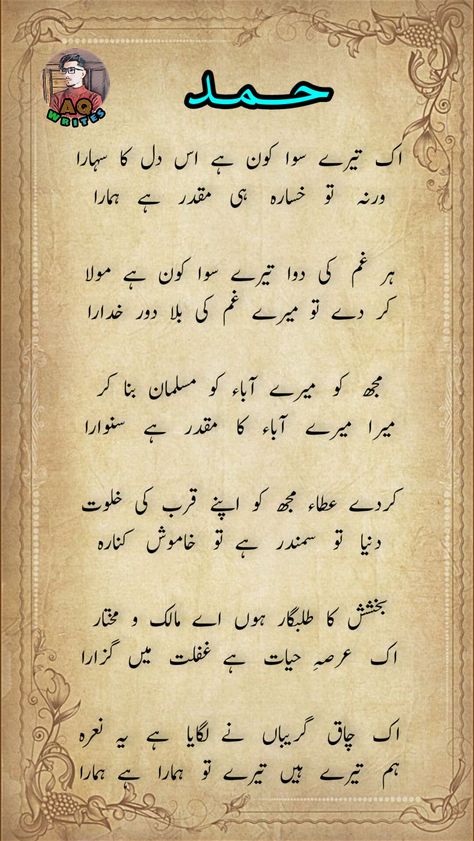 AQ
WRITES
حمد
اک تیرے سوا کون ہے اس دل کا سہارا
ورنہ تو خسارہ ہی مقدر ہے ہمارا
ہر غم کی دوا تیرے سوا کون ہے مولا
کر دے تو میرے غم کی بلا دور خدارا
مجھ کو میرے آباء کو مسلمان بنا کر
میرا میرے آباء کا مقدر ہے سنوارا
کردے عطاء مجھ کو اپنے قرب کی خلوت
دنیا تو سمندر ہے تو خاموش کنارہ
بخشش کا طلبگار ہوں اے مالک و مختار
اک عرصہِ حیات ہے غفلت میں گزارا
اک چاق گریباں نے لگایا ہے یہ نعرہ
ہم تیرے ہیں تیرے تو ہمارا ہے ہمارا